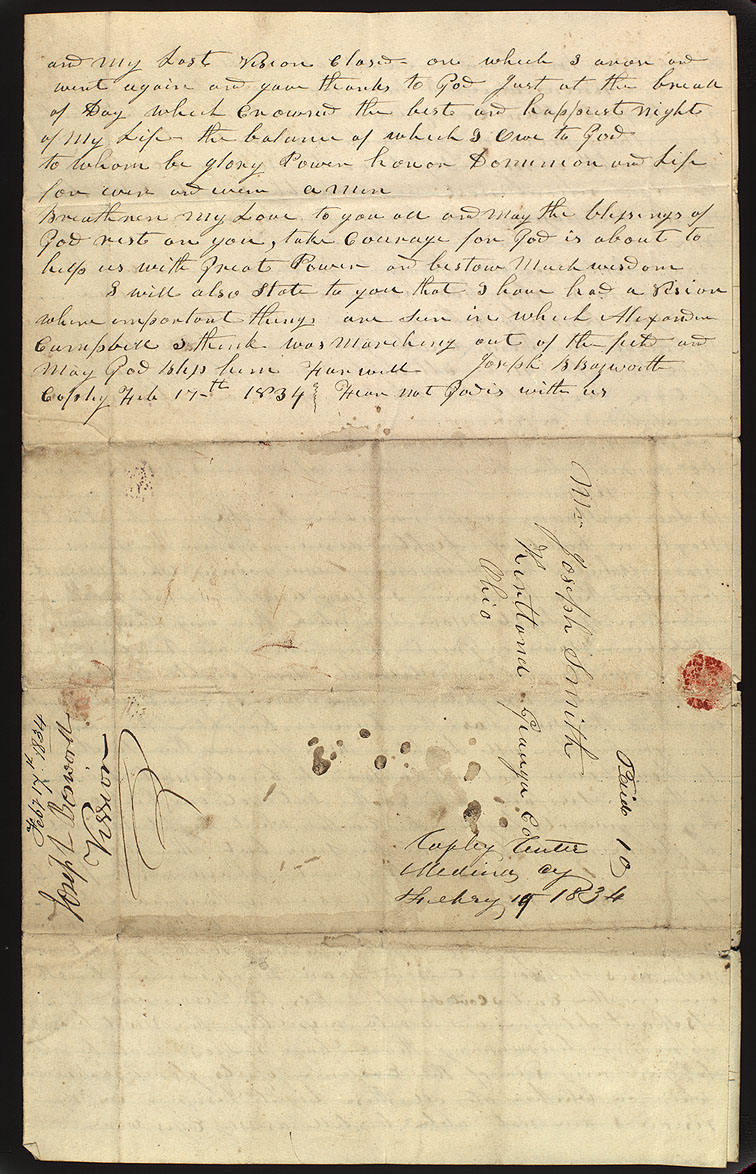 and My Last Vision Closed on which I arose and
went again and gave thanks to God Just at the break
of Day which Crowned the best and happiest nights
of My Life the balance of which I Owe to God
to whom be glory Power honor Dominion and Life
for ever and ever amen
Breathren My Love to you all and May the blessings of
God rest on you, take Courage for God is about to
help us with great Power and bestow Much wisdom
I will also State to you that I have had a Vision
where important things are seen in which Alexander
Campbell I think was Marching out of the field and
May God help him Farwell Joseph B Bosworth
Copley Feb 17th 1834 Fear not God is with us
Mr Joseph Smith
Kirtland Geauga Co
Ohio
Paid 10
Copley Center
Medina Cy
19 1834
Joseph Bosworth
Feby 17th 1834
Vision